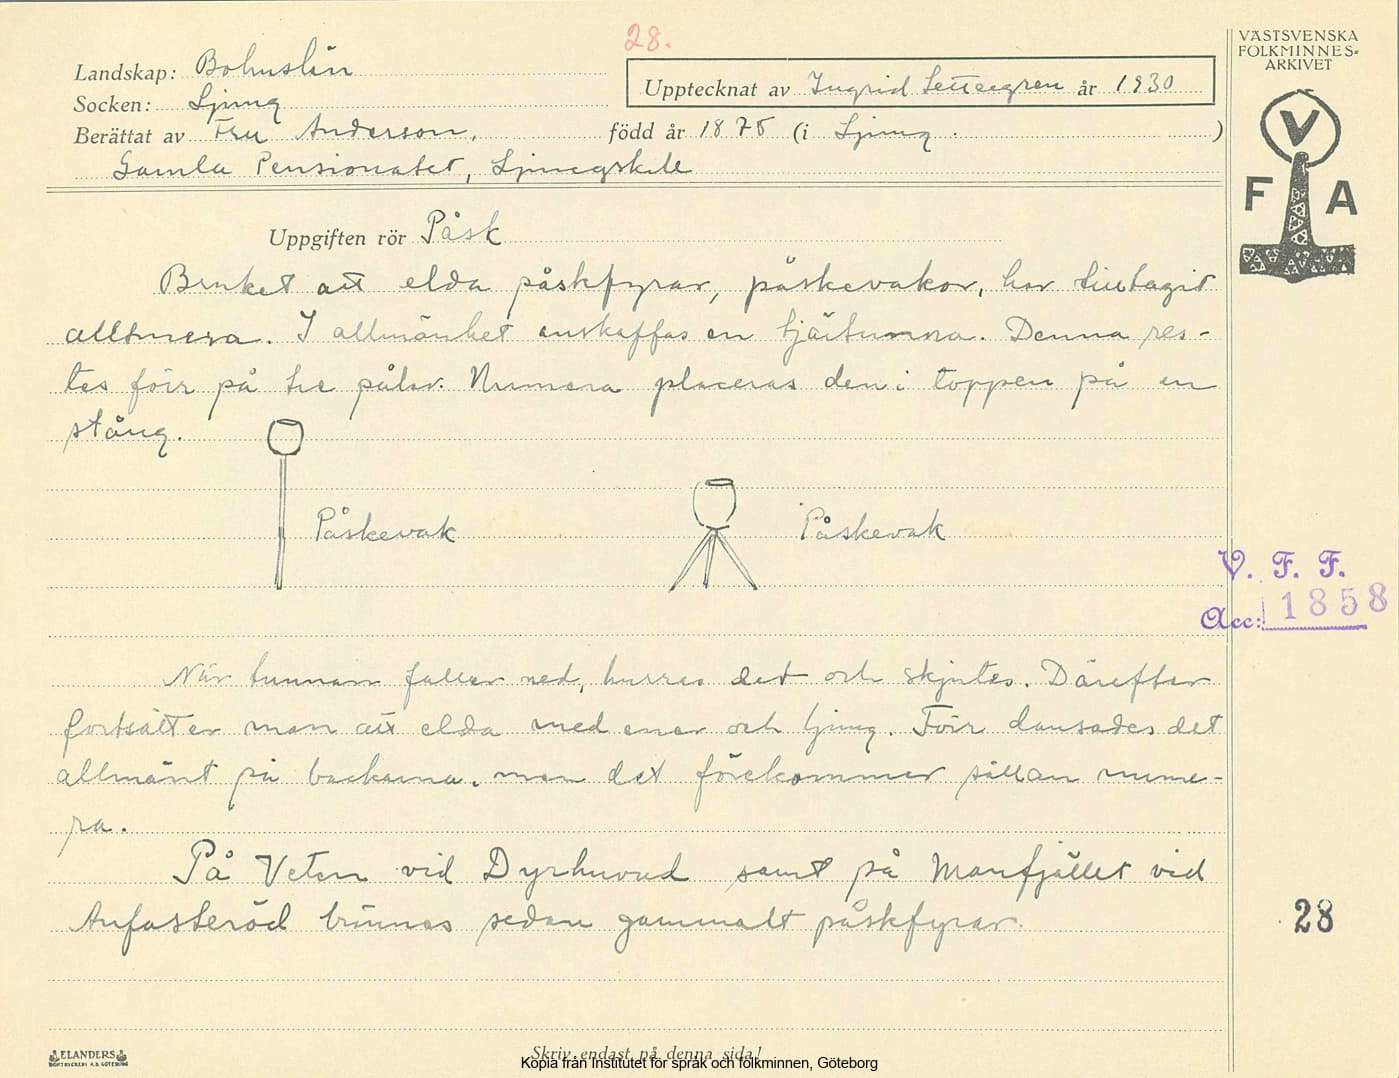 28.
VÄSTSVENSKA
FOLKMINNES-
ARKIVET
Landskap: Bohuslän
Upptecknat av Ingrid Settergren år 1930
Socken: Ljung
Berättat av Fru Anderson, född år 1875 (i Ljung.)
Gamla Pensionatet, Ljungskile
V
F A
Uppgiften rör Påsk
Bruket att elda påskfyrar, påskevakor, har tilltagit
alltmera. I allmänhet anskaffas en tjärtunna. Denna res-
tes förr på tre pålar. Numera placeras den i toppen på en
stång.
Påskevak
Påskevak
V. F. F.
Acc: 1858
När tunnan faller ned, hurras det och skjutes. Därefter
fortsätter man att elda med ener och ljung. Förr dansades det
allmänt på backarna, men det förekommer sällan nume-
ra.
På Veten vid Dyrhuvud samt på Manfjället vid
Anfasteröd brinnas sedan gammalt påskfyrar.
28
ELANDERS
BOKTRYCKERI A.B. GÖTEBORG
Skriv endast på denna sida!
Kopia från Institutet för språk och folkminnen, Göteborg